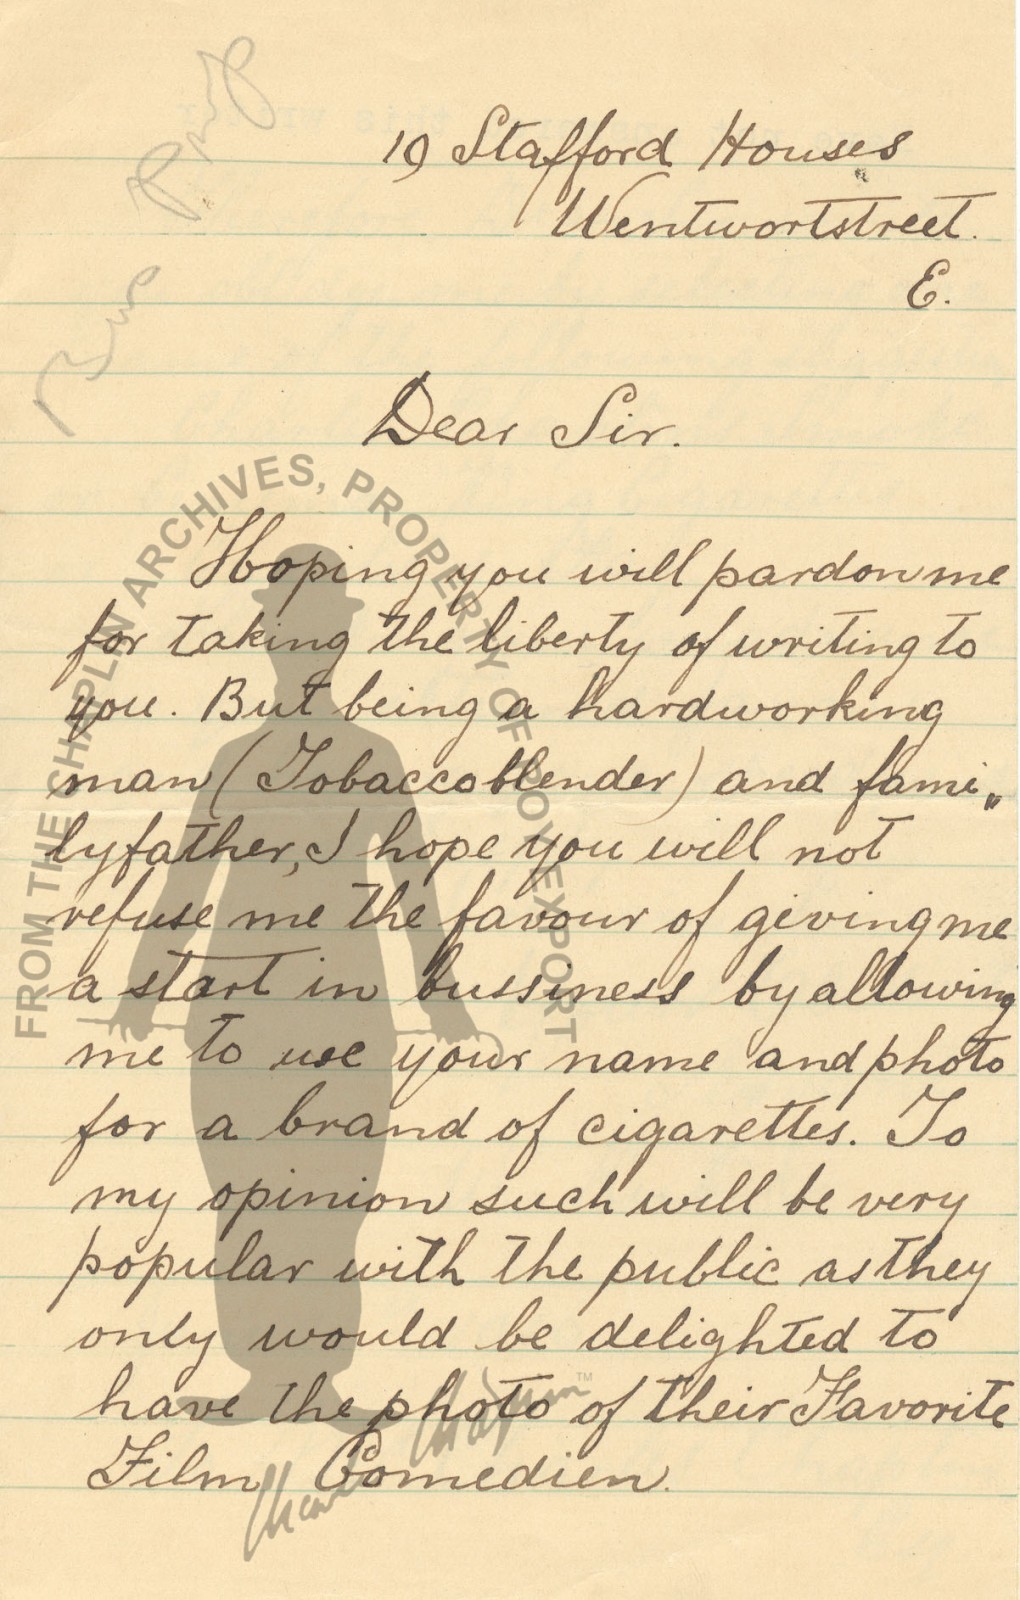 Bus Prop
19 Stafford Houses
Wentwortstreet.
E.
Dear Sir.
Hoping you will pardon me
for taking the liberty of writing to
you. But being a hardworking
man (Tobaccoblender) and fami„
lyfather, I hope you will not
refuse me the favour of giving me
a start in bussiness by allowing
me to use your name and photo
for a brand of cigarettes. To
my opinion such will be very
popular with the public as they
only would be delighted to
have the photo of their Favorite
Film Comedien.
FROM THE CHAPLIN ARCHIVES, PROPERTY OF ROY EXPORT
Charlie Chaplin™